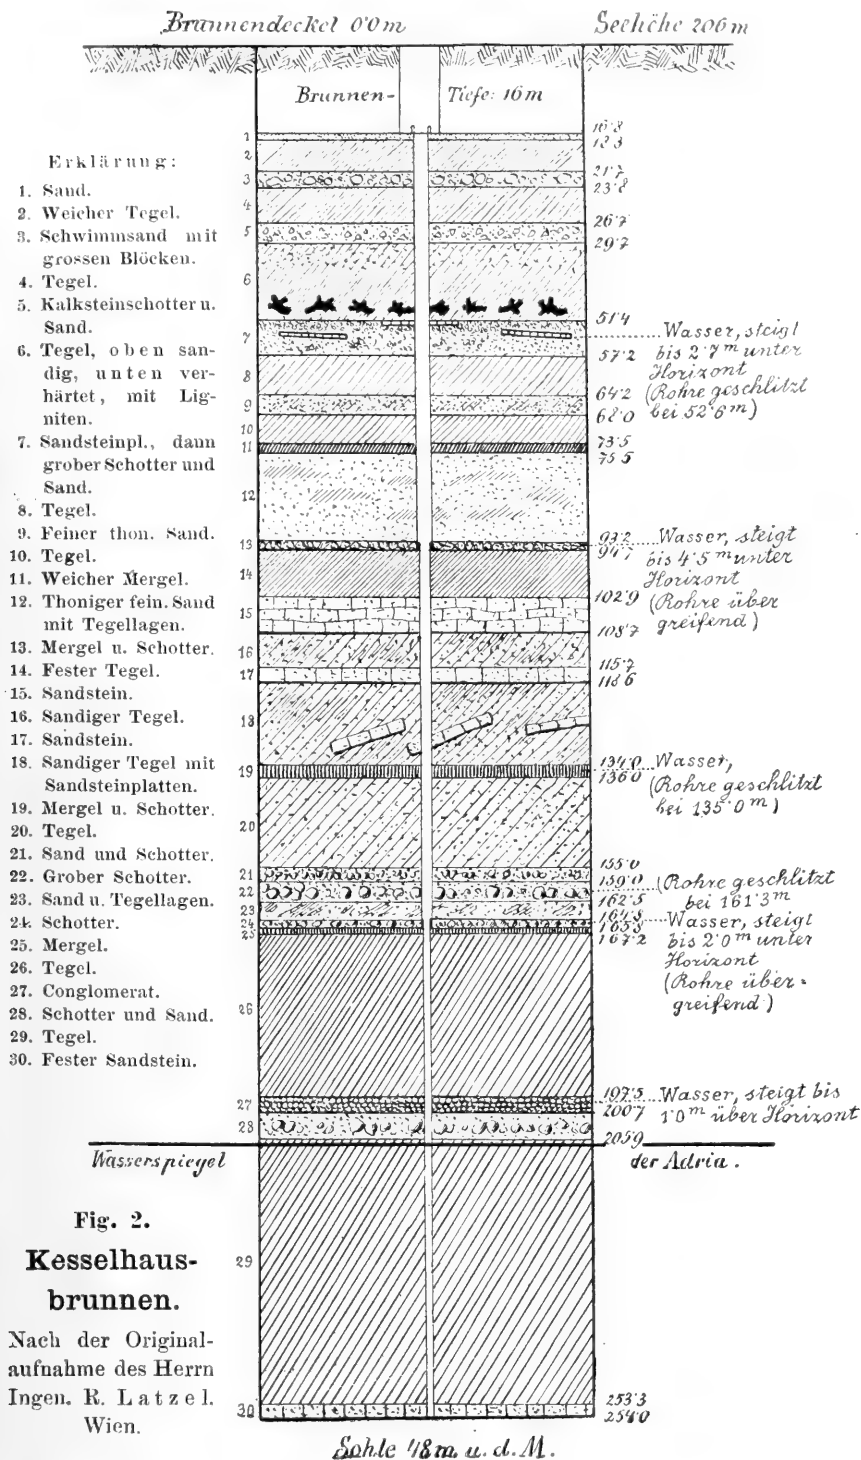 Brunnendeckel 0·0 m
Seehöhe 206 m
Brunnen-
Tiefe: 16 m
Erklärung:
1. Sand.
2. Weicher Tegel.
3. Schwimmsand mit
grossen Blöcken.
4. Tegel.
5. Kalksteinschotter u.
Sand.
6. Tegel, oben san-
dig, unten ver-
härtet, mit Lig-
niten.
7. Sandsteinpl., dann
grober Schotter und
Sand.
8. Tegel.
9. Feiner thon. Sand.
10. Tegel.
11. Weicher Mergel.
12. Thoniger fein. Sand
mit Tegellagen.
13. Mergel u. Schotter.
14. Fester Tegel.
15. Sandstein.
16. Sandiger Tegel.
17. Sandstein.
18. Sandiger Tegel mit
Sandsteinplatten.
19. Mergel u. Schotter.
20. Tegel.
21. Sand und Schotter.
22. Grober Schotter.
23. Sand u. Tegellagen.
24. Schotter.
25. Mergel.
26. Tegel.
27. Conglomerat.
28. Schotter und Sand.
29. Tegel.
30. Fester Sandstein.
1
2
3
4
5
6
7
8
9
10
11
12
13
14
15
16
17
18
19
20
21
22
23
24
25
26
27
28
29
30
16·8
18·3
21·7
23·8
26·7
29·7
51·4
57·2
64·2
68·0
73·5
75·5
93·2
94·7
102·9
108·7
115·7
118·6
134·0
136·0
155·0
159·0
162·5
164·8
165·8
167·2
197·5
200·7
205·9
253·3
254·0
Wasser, steigt
bis 2·7 m unter
Horizont
(Rohre geschlitzt
bei 52·6 m)
Wasser, steigt
bis 4·5 m unter
Horizont
(Rohre über
greifend)
Wasser,
(Rohre geschlitzt
bei 135·0 m)
(Rohre geschlitzt
bei 161·3 m
Wasser, steigt
bis 2·0 m unter
Horizont
(Rohre über-
greifend)
Wasser, steigt bis
1·0 m über Horizont
Wasserspiegel
der Adria.
Fig. 2.
Kesselhaus-
brunnen.
Nach der Original-
aufnahme des Herrn
Ingen. R. Latzel.
Wien.
Sohle 48 m. u. d. M.